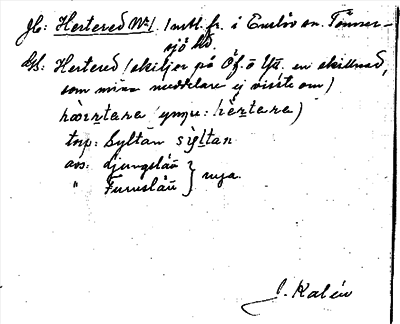 Jb: Hertered N:1/ Intl. fr. i Enslöv sn. Tönner-
sjö hd.
Gs: Hertered (skiljer på Öf. o Ytt. en skillnad,
som mina meddelare ej visste om)
hærtara (yngre: hèrtara)
tnp: Syltan sỳltan
avs: Ljungslätt } nya.
" Furuslätt
J. Kalén